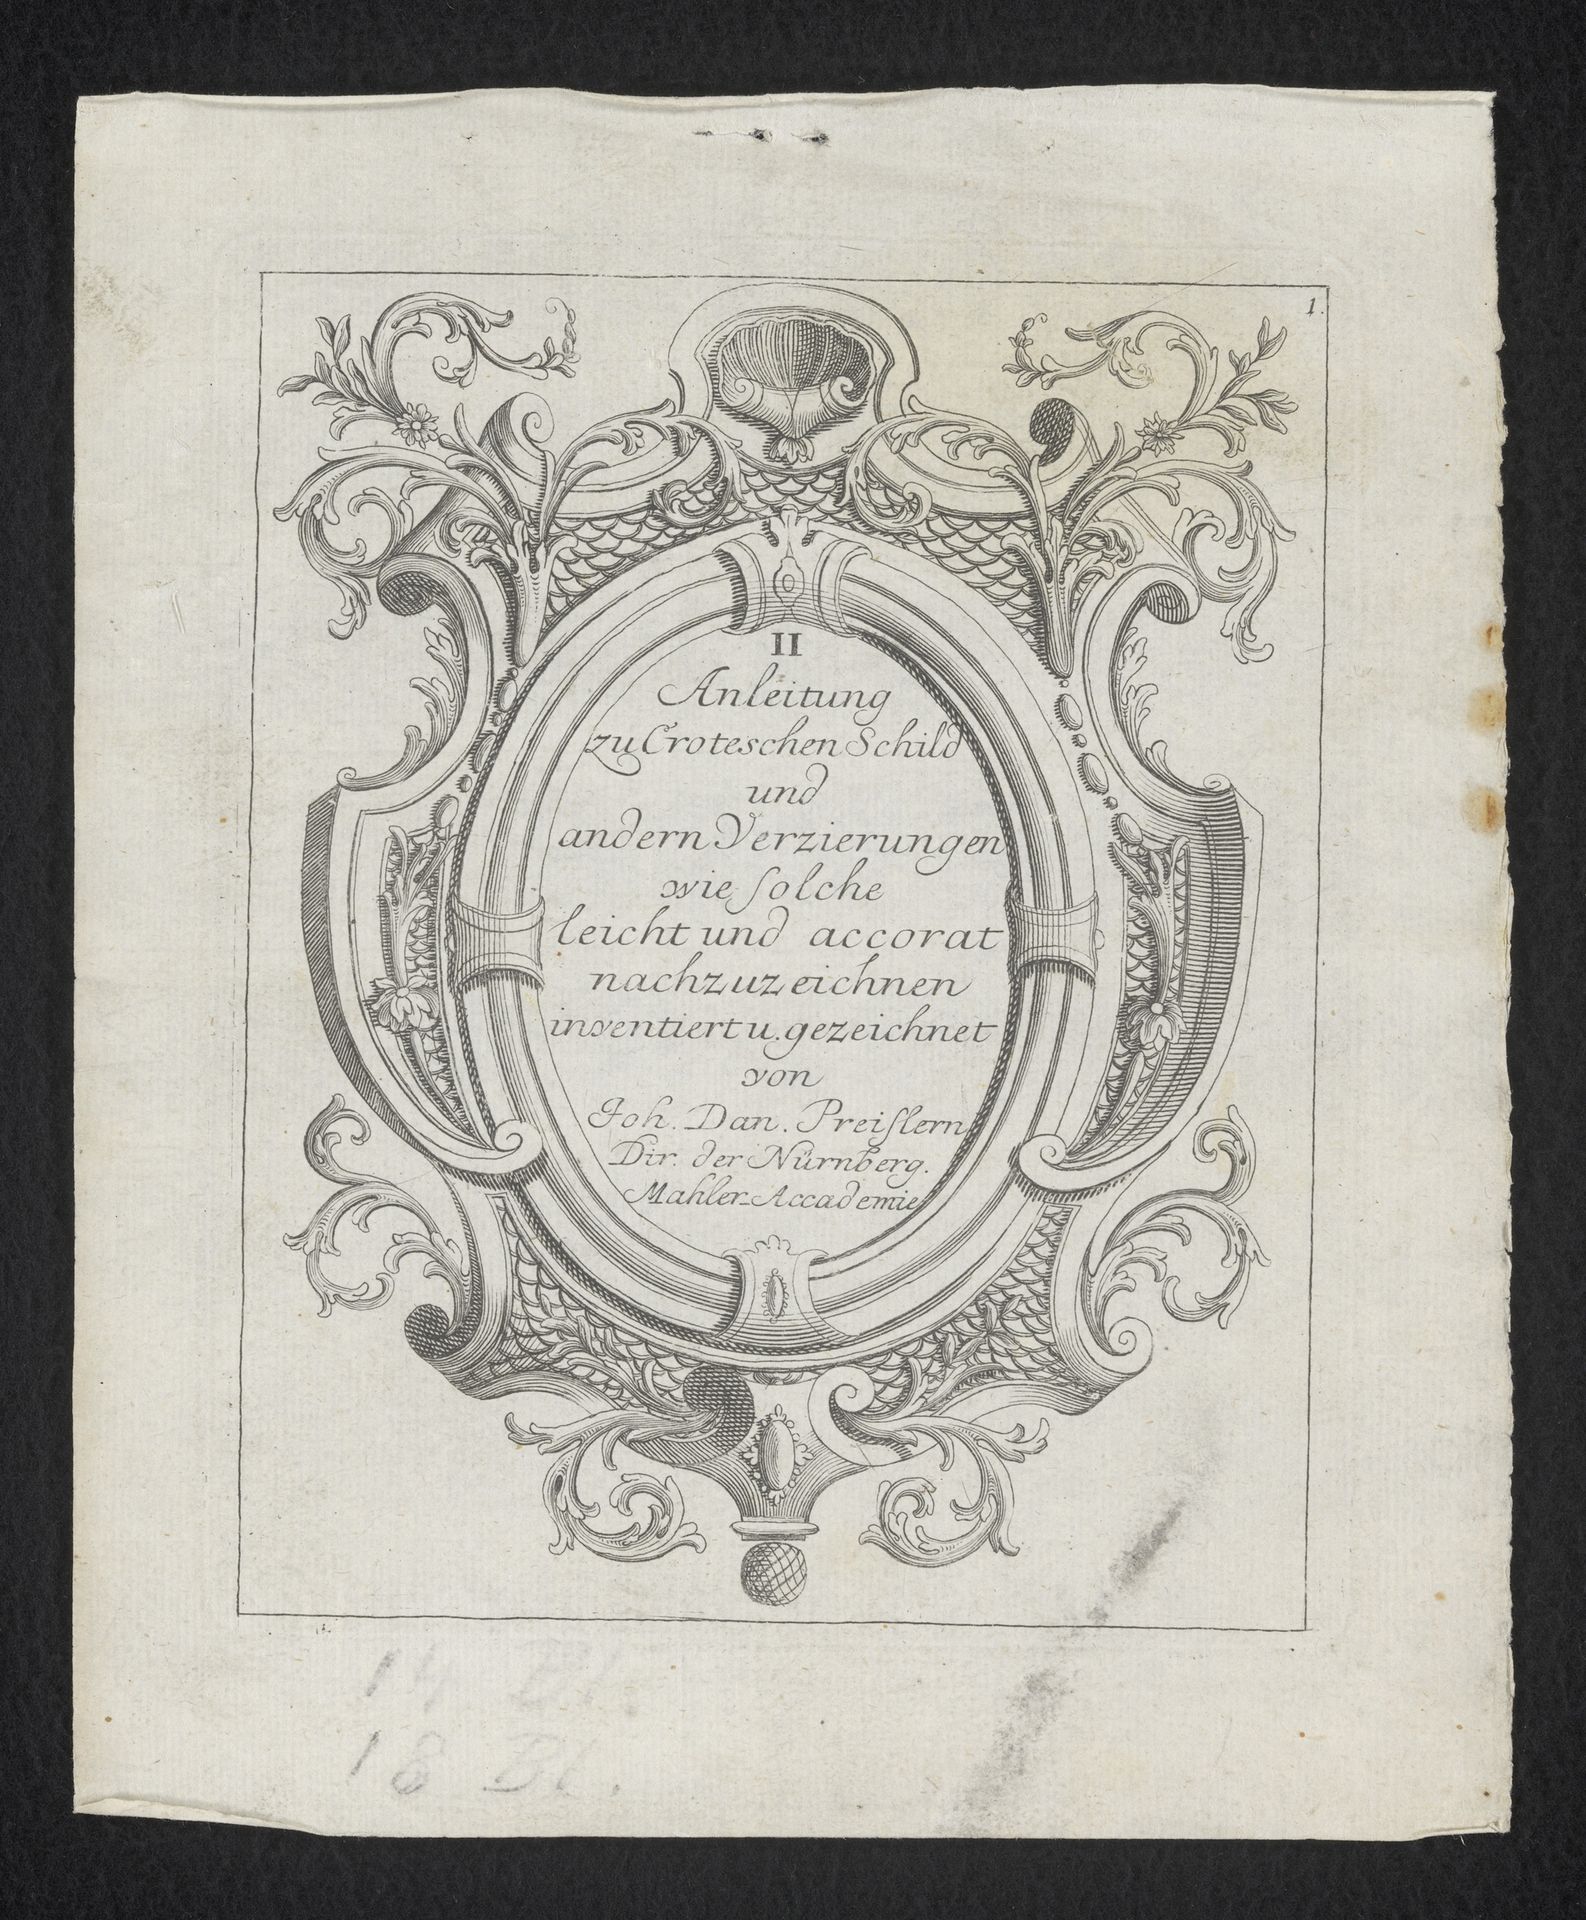 1.
II
Anleitung
zu Croteschen Schild
und
andern Verzierungen
wie ſolche
leicht und accorat
nachzuzeichnen
inventiert u. gezeichnet
von
Joh. Dan. Preiſlern
Dir. der Nürnberg.
Mahler-Accademie
14 Bl.
18 Bl.